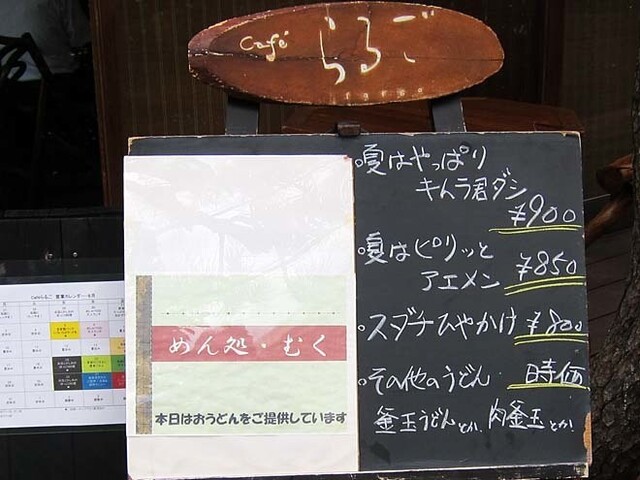 Café らるご
largo
・夏はやっぱり
キムラ君ダシ
¥900
・夏はピリッと
アエメン ¥850
・スダチひやかけ ¥800
・その他のうどん 時価
釜玉うどんとか、肉釜玉とか、
めん処・むく
本日はおうどんをご提供しています
Caféらるご 営業カレンダー